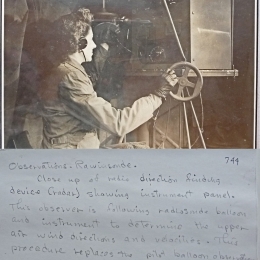 Observations: Rawinsonde. 744
Close up of radio direction finding
device (radar) showing instrument panel.
This observer is following radiosonde balloon
and instrument to determine the upper
air wind directions and velocities. This
procedure replaces the pilot balloon